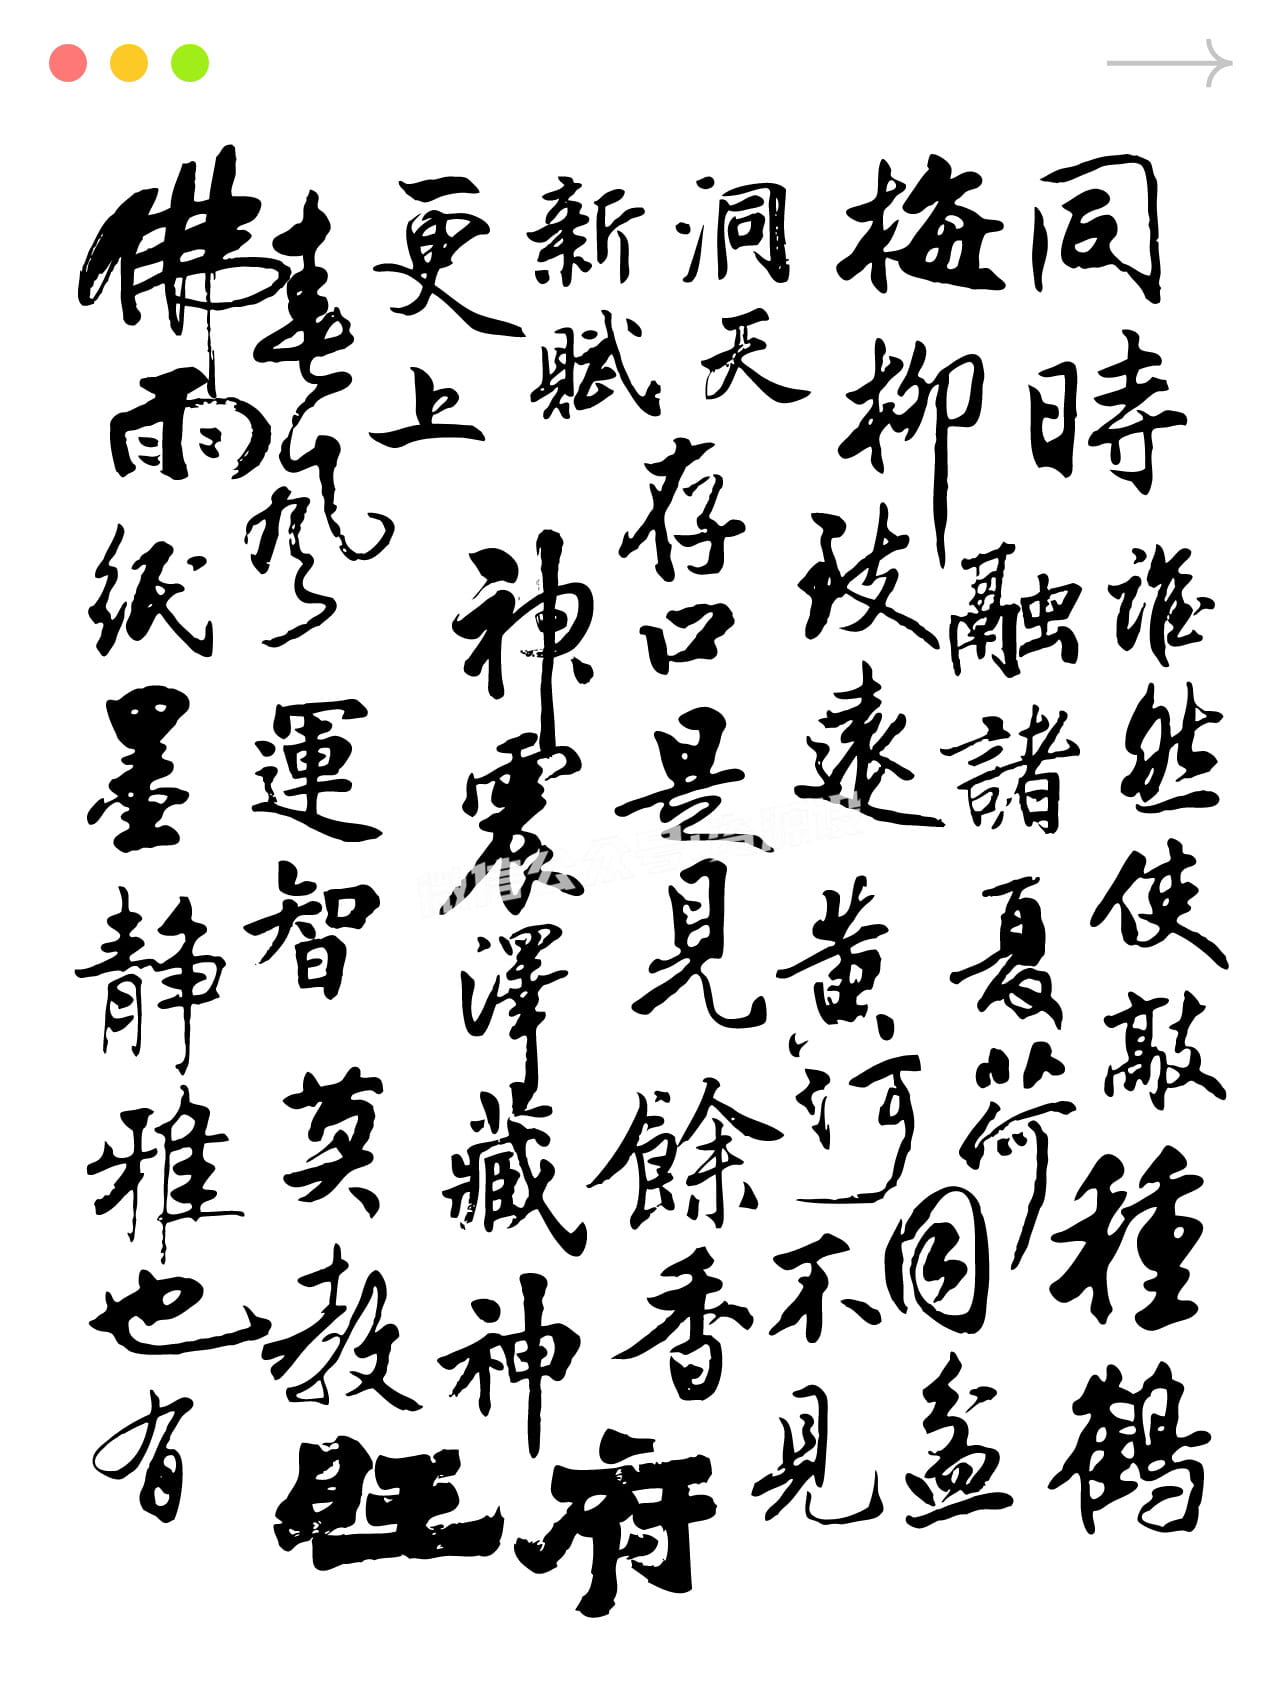 同時誰然使敲種鶴
梅柳融諸夏荷同盆
致遠黃河不見
洞天存口是見餘香
新賦神震澤藏神府
更上
春風運智莫教旺
佛雨紙墨静雅也有